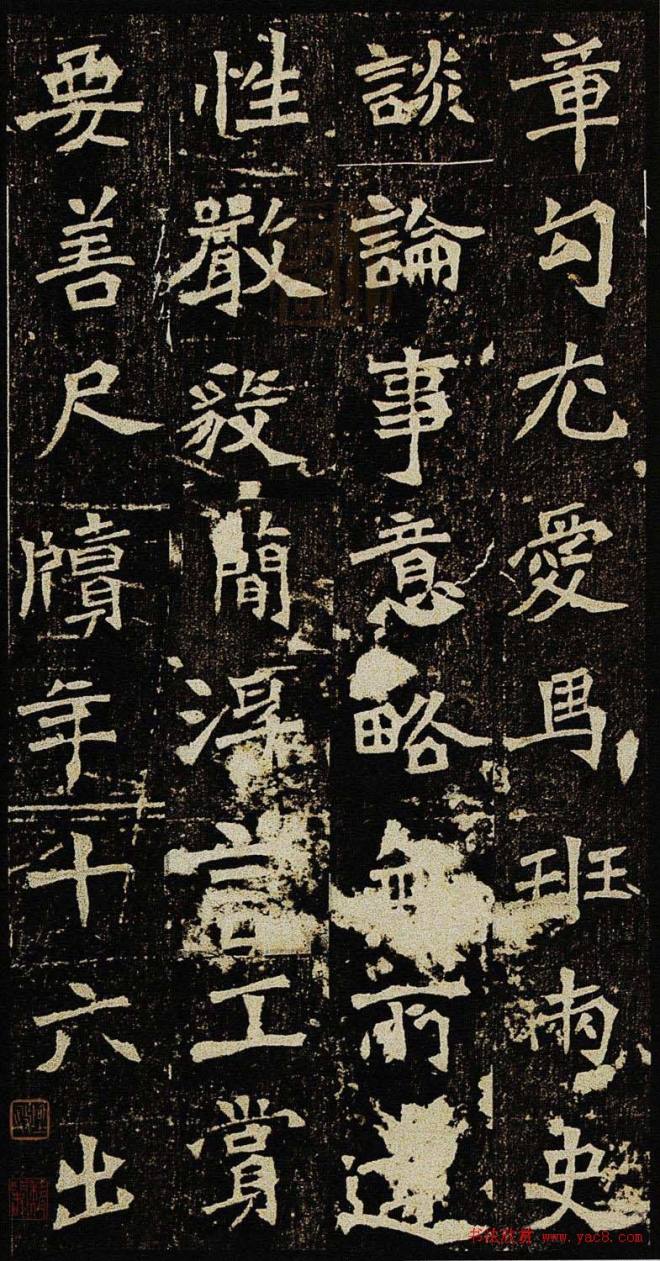 章勾尤愛馬班兩史
談論事意略無所遺
性嚴毅簡浮言工賞
要善尺牘年十六出
书法欣赏 www.yac8.com